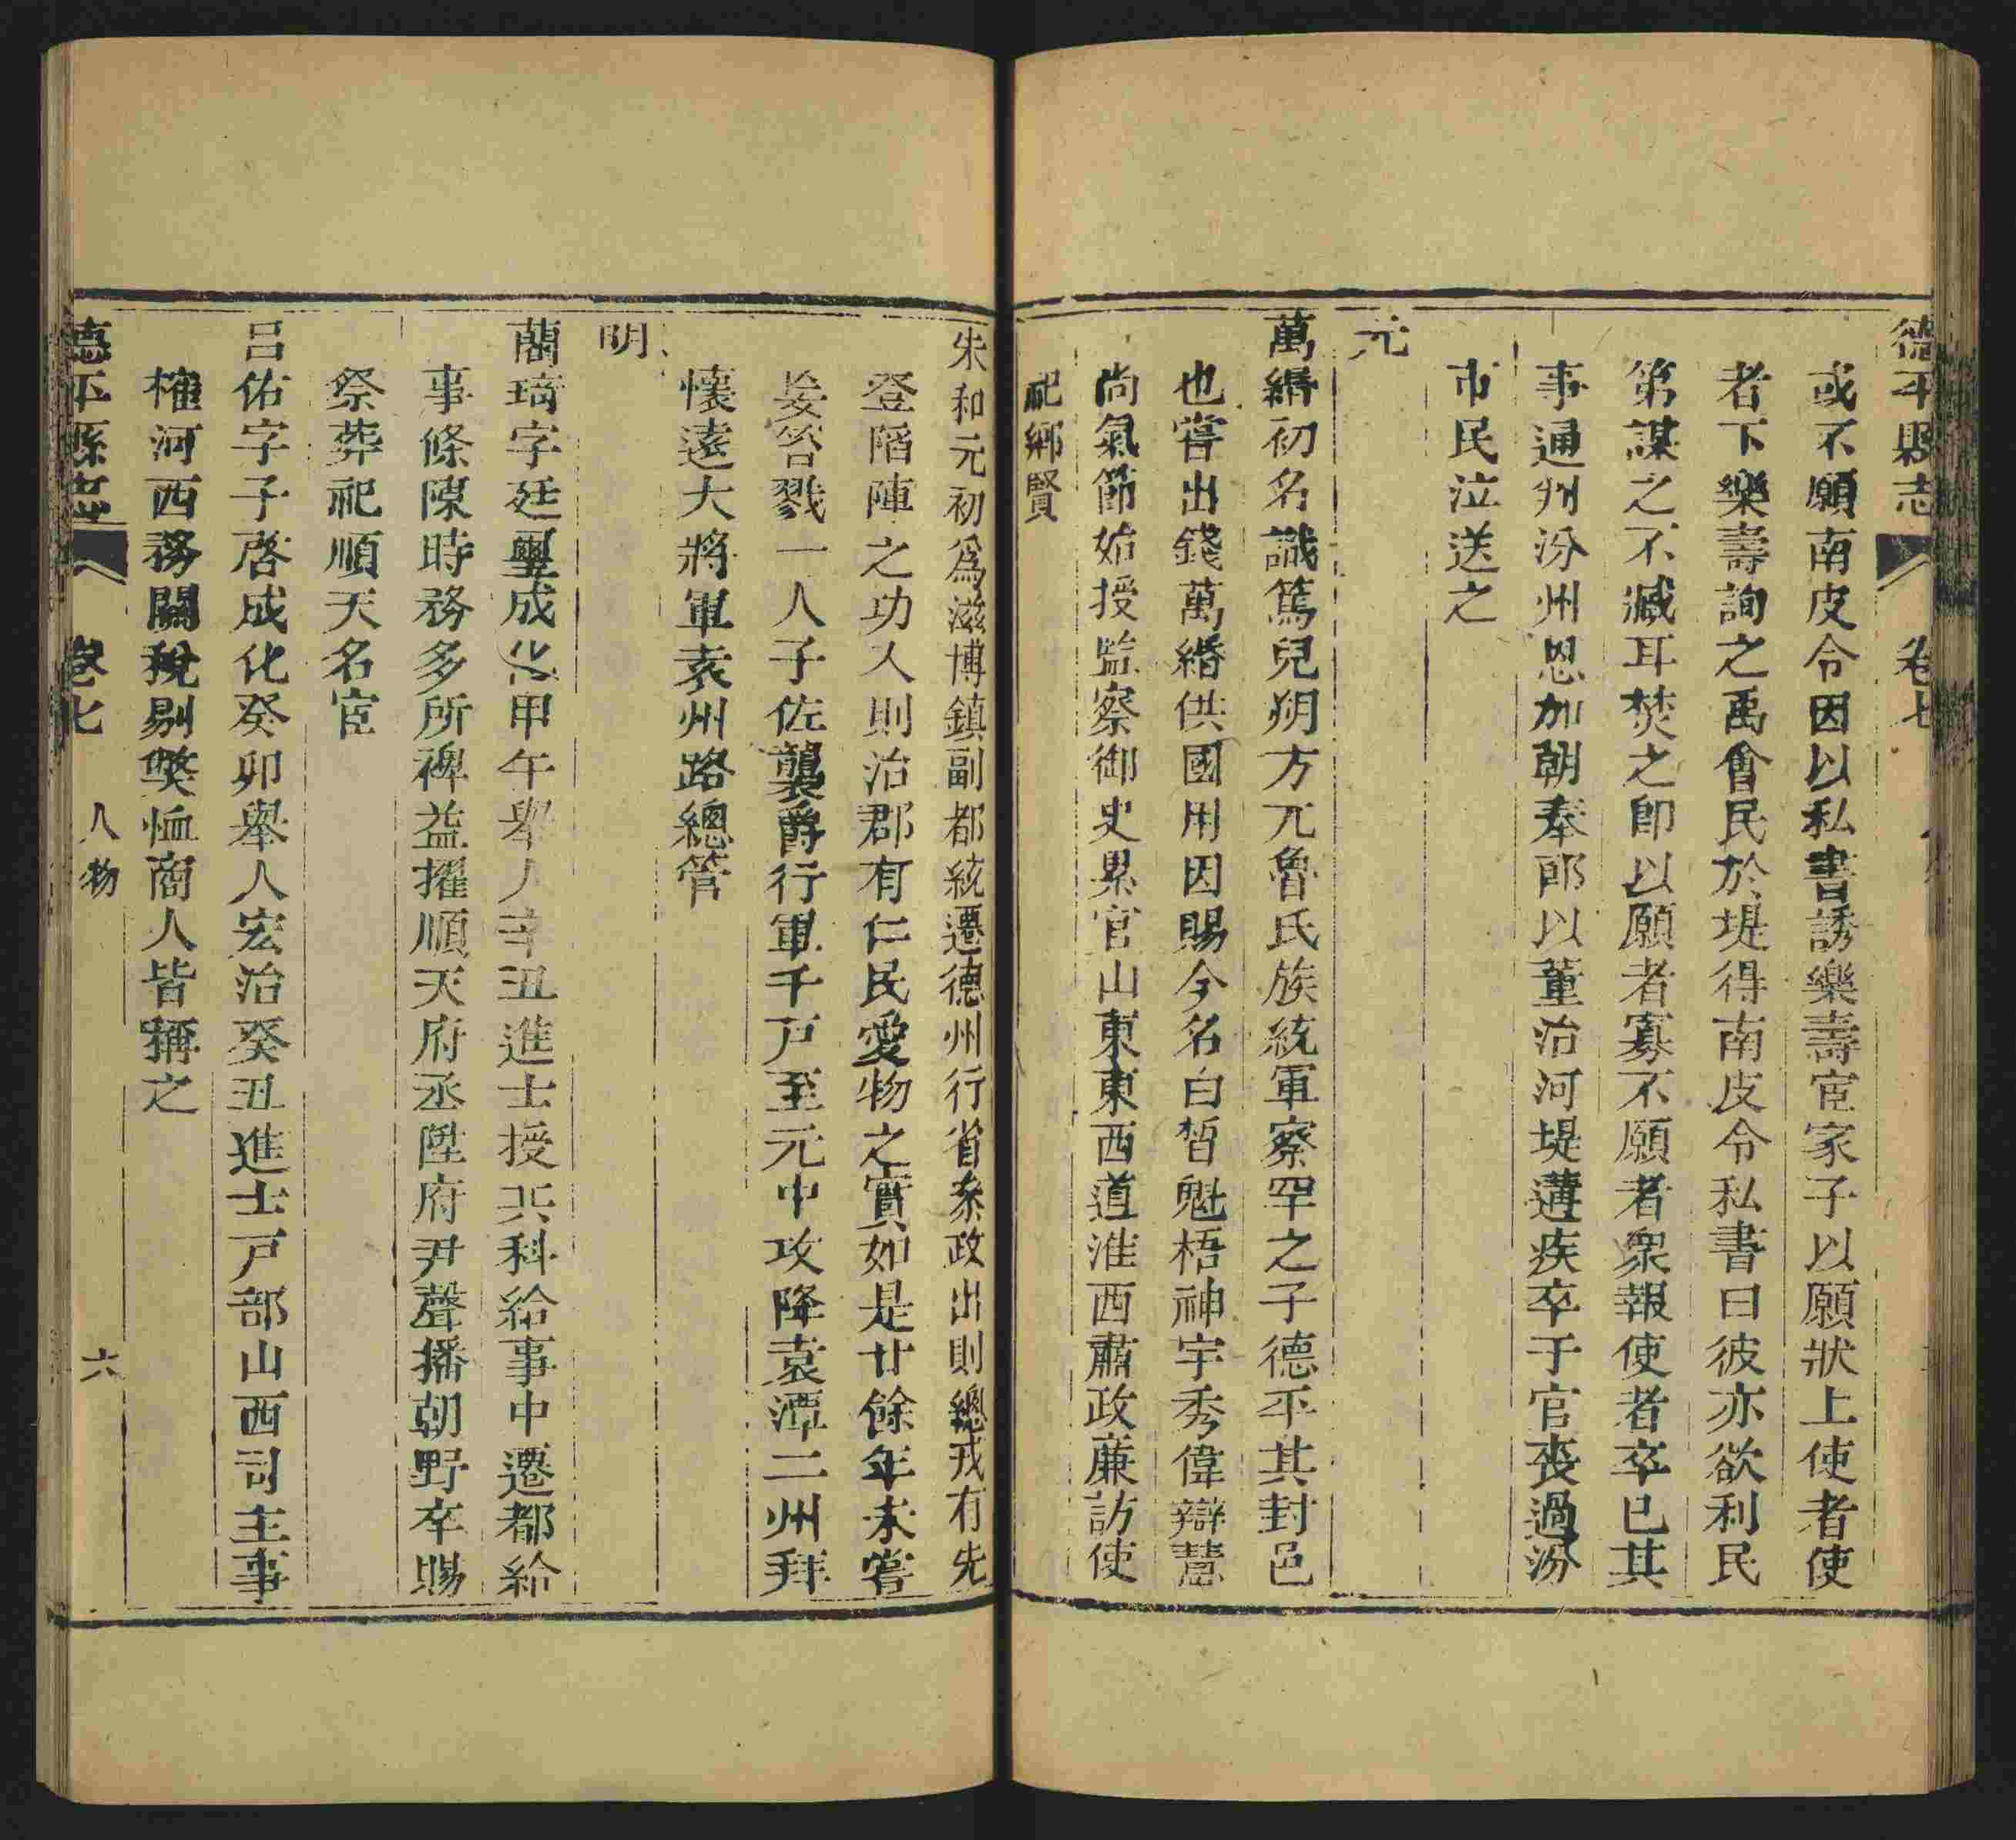 德平縣志 卷七
或不願南皮令因以私書誘樂壽宦家子以願狀上使者使
者下樂壽詢之禹會民於堤得南皮令私書曰彼亦欲利民
第謀之不臧耳焚之卽以願者寡不願者衆報使者卒已其
事通州汾州恩加朝奉郎以董治河堤遘疾卒于官喪過汾
市民泣送之
元
萬緡初名識篤兒朔方兀魯氏族統軍察罕之子德平其封邑
也嘗出錢萬緡供國用因賜今名白晳魁梧神宇秀偉辯慧
尚氣節始授監察御史累官山東東西道淮西肅政廉訪使
祀鄉賢
朱和元初爲滋博鎮副都統遷德州行省叅政出則總戎有先
登陷陣之功入則治郡有仁民愛物之實如是廿餘年未嘗
妄笞戮一人子佐襲爵行軍千戸至元中攻降袁潭二州拜
懷遠大將軍袁州路總管
明
藺琦字廷璽成化甲午舉人辛丑進士授兵科給事中遷都給
事條陳時務多所裨益擢順天府丞陞府尹聲播朝野卒賜
祭葬祀順天名宦
呂佑字子啓成化癸卯舉人宏治癸丑進士戸部山西司主事
榷河西務關稅剔獘恤商人皆稱之
德平縣志 卷七 人物 六